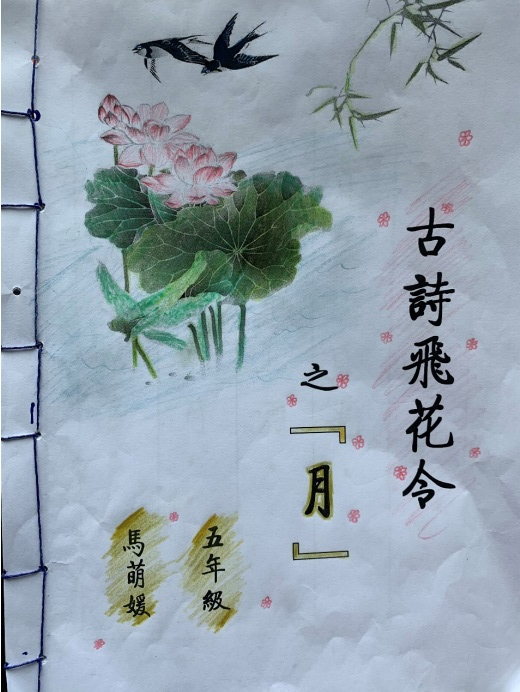 古詩飛花令
之『月』
五年級
馬萌媛